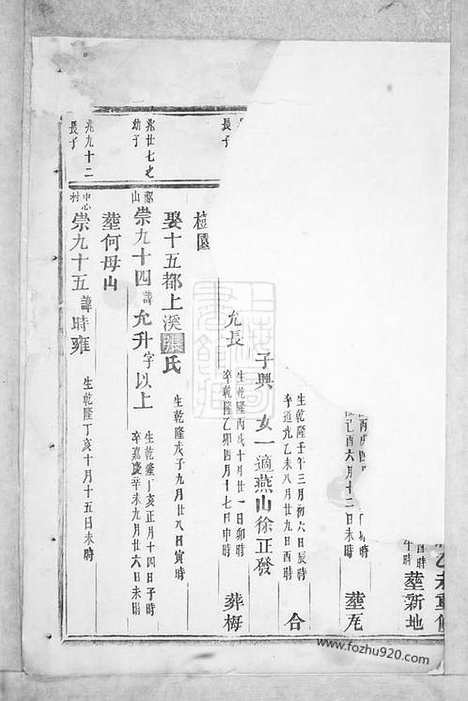 乙未重修
酉時
午時 葬新地
己酉六月十二日未時 葬
生乾隆壬午三月初六日辰時
卒道光乙未八月廿九日酉時 合
子興 女一適燕山徐正發
允長 生乾隆丙戌十月廿一日卯時
卒乾隆乙卯四月十七日申時 葬梅
樹園
娶十五都上溪張氏 生乾隆戊子九月廿八日寅時
兆廿七之
幼子
崇九十四諱允升字以上 生乾隆丁亥正月十四日子時
卒嘉慶辛未九月廿六日未時
葬何母山
兆九十二
長子
崇九十五諱時雍 生乾隆丁亥十月十五日未時
www.fozhu920.com